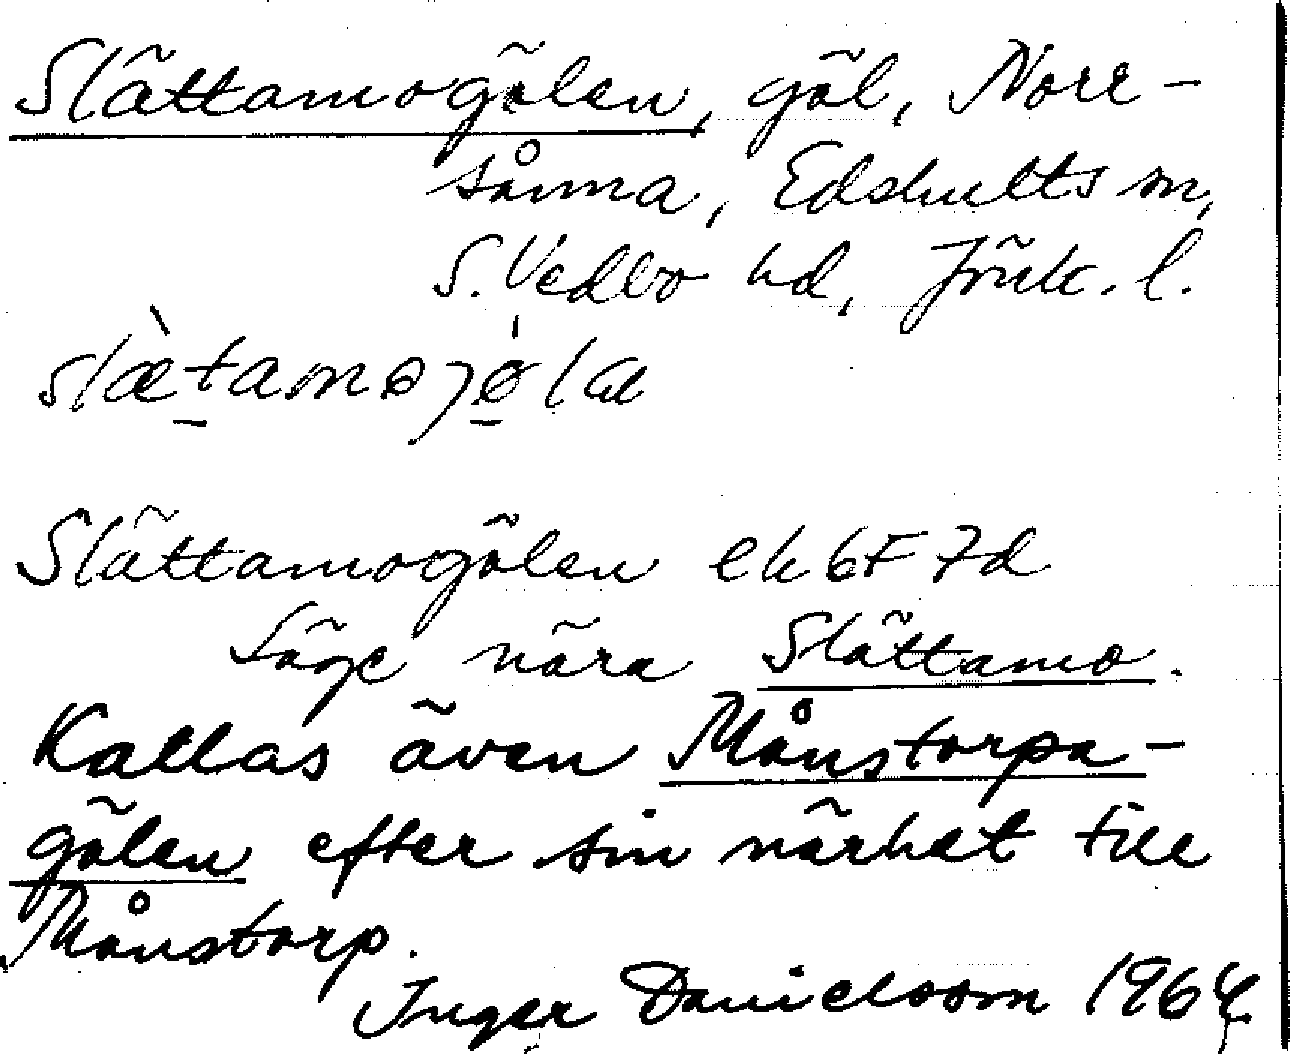 Slättamogölen, göl, Norr-
sånna, Edshults sn,
S. Vedbo hd, Jönk. l.
Slättamogölen ek 6F 7d
Läge nära Slättamo.
Kallas även Månstorpa-
gölen efter sin närhet till
Månstorp.
Inger Danielsson 1964